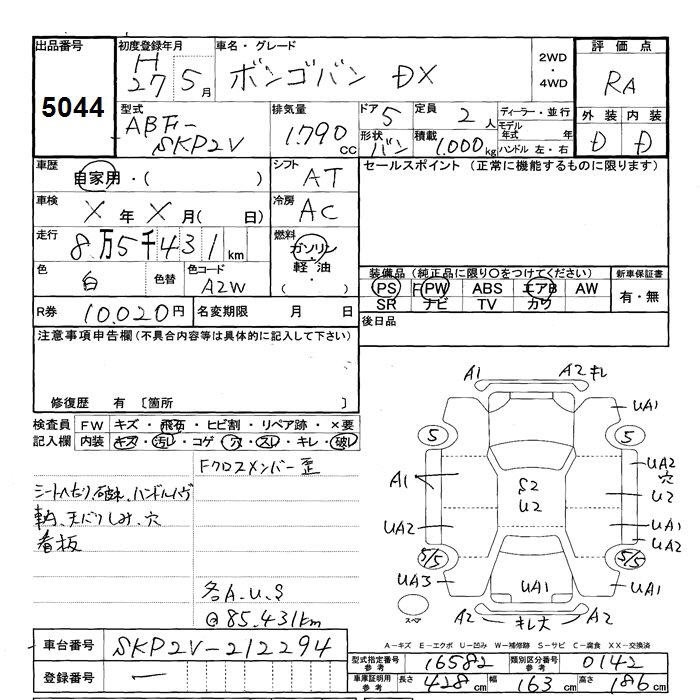 出品番号
5044
初度登録年月
H
27 5月
車名・グレード
ボンゴバン DX
2WD
・
4WD
評価点
RA
外装 内装
D D
型式
ABF-
SKP2V
排気量
1.790 CC
ドア 5
形状 バン
定員 2人
積載 1,000kg
ディーラー・並行
モデル年式 年
ハンドル 左・右
車歴
自家用・( )
シフト AT
セールスポイント (正常に機能するものに限ります)
車検
X 年 X 月( 日)
冷房 AC
走行
8万5千431km
燃料
ガソリン
軽油
( )
色 白
色替
色コード
A2W
装備品(純正品に限り○をつけてください)
新車保証書
PS PW ABS エアB AW
SR ナビ TV カワ
有・無
R券 10,020円
名変期限 月 日
後日品
注意事項申告欄(不具合内容等は具体的に記入して下さい)
修復歴 有 〔箇所 〕
検査員記入欄
FW キズ・飛石・ヒビ割・リペア跡・×要
内装 キズ・汚レ・コゲ・穴・スレ・キレ・破レ
Fクロスメンバー歪
シートヘタリ、破れ、ハンドル
天バリしみ、穴
看板
各A.U.S
@85.431km
A1 A2 キレ
UA1
5 5
UA2
穴
A1
S2
U2
U2
UA2
UA1
UA2
5/5 5/5
UA3
UA1
UA1
スペア
A2 キレ大 A2
車台番号 SKP2V-212294
登録番号 —
A-キズ E-エクボ U-凹み W-補修跡 S-サビ C-腐食 XX-交換済
型式指定番号 参考 16582
類別区分番号 参考 0142
車庫証明用 参考 長さ 428cm 幅 163cm 高さ 186cm